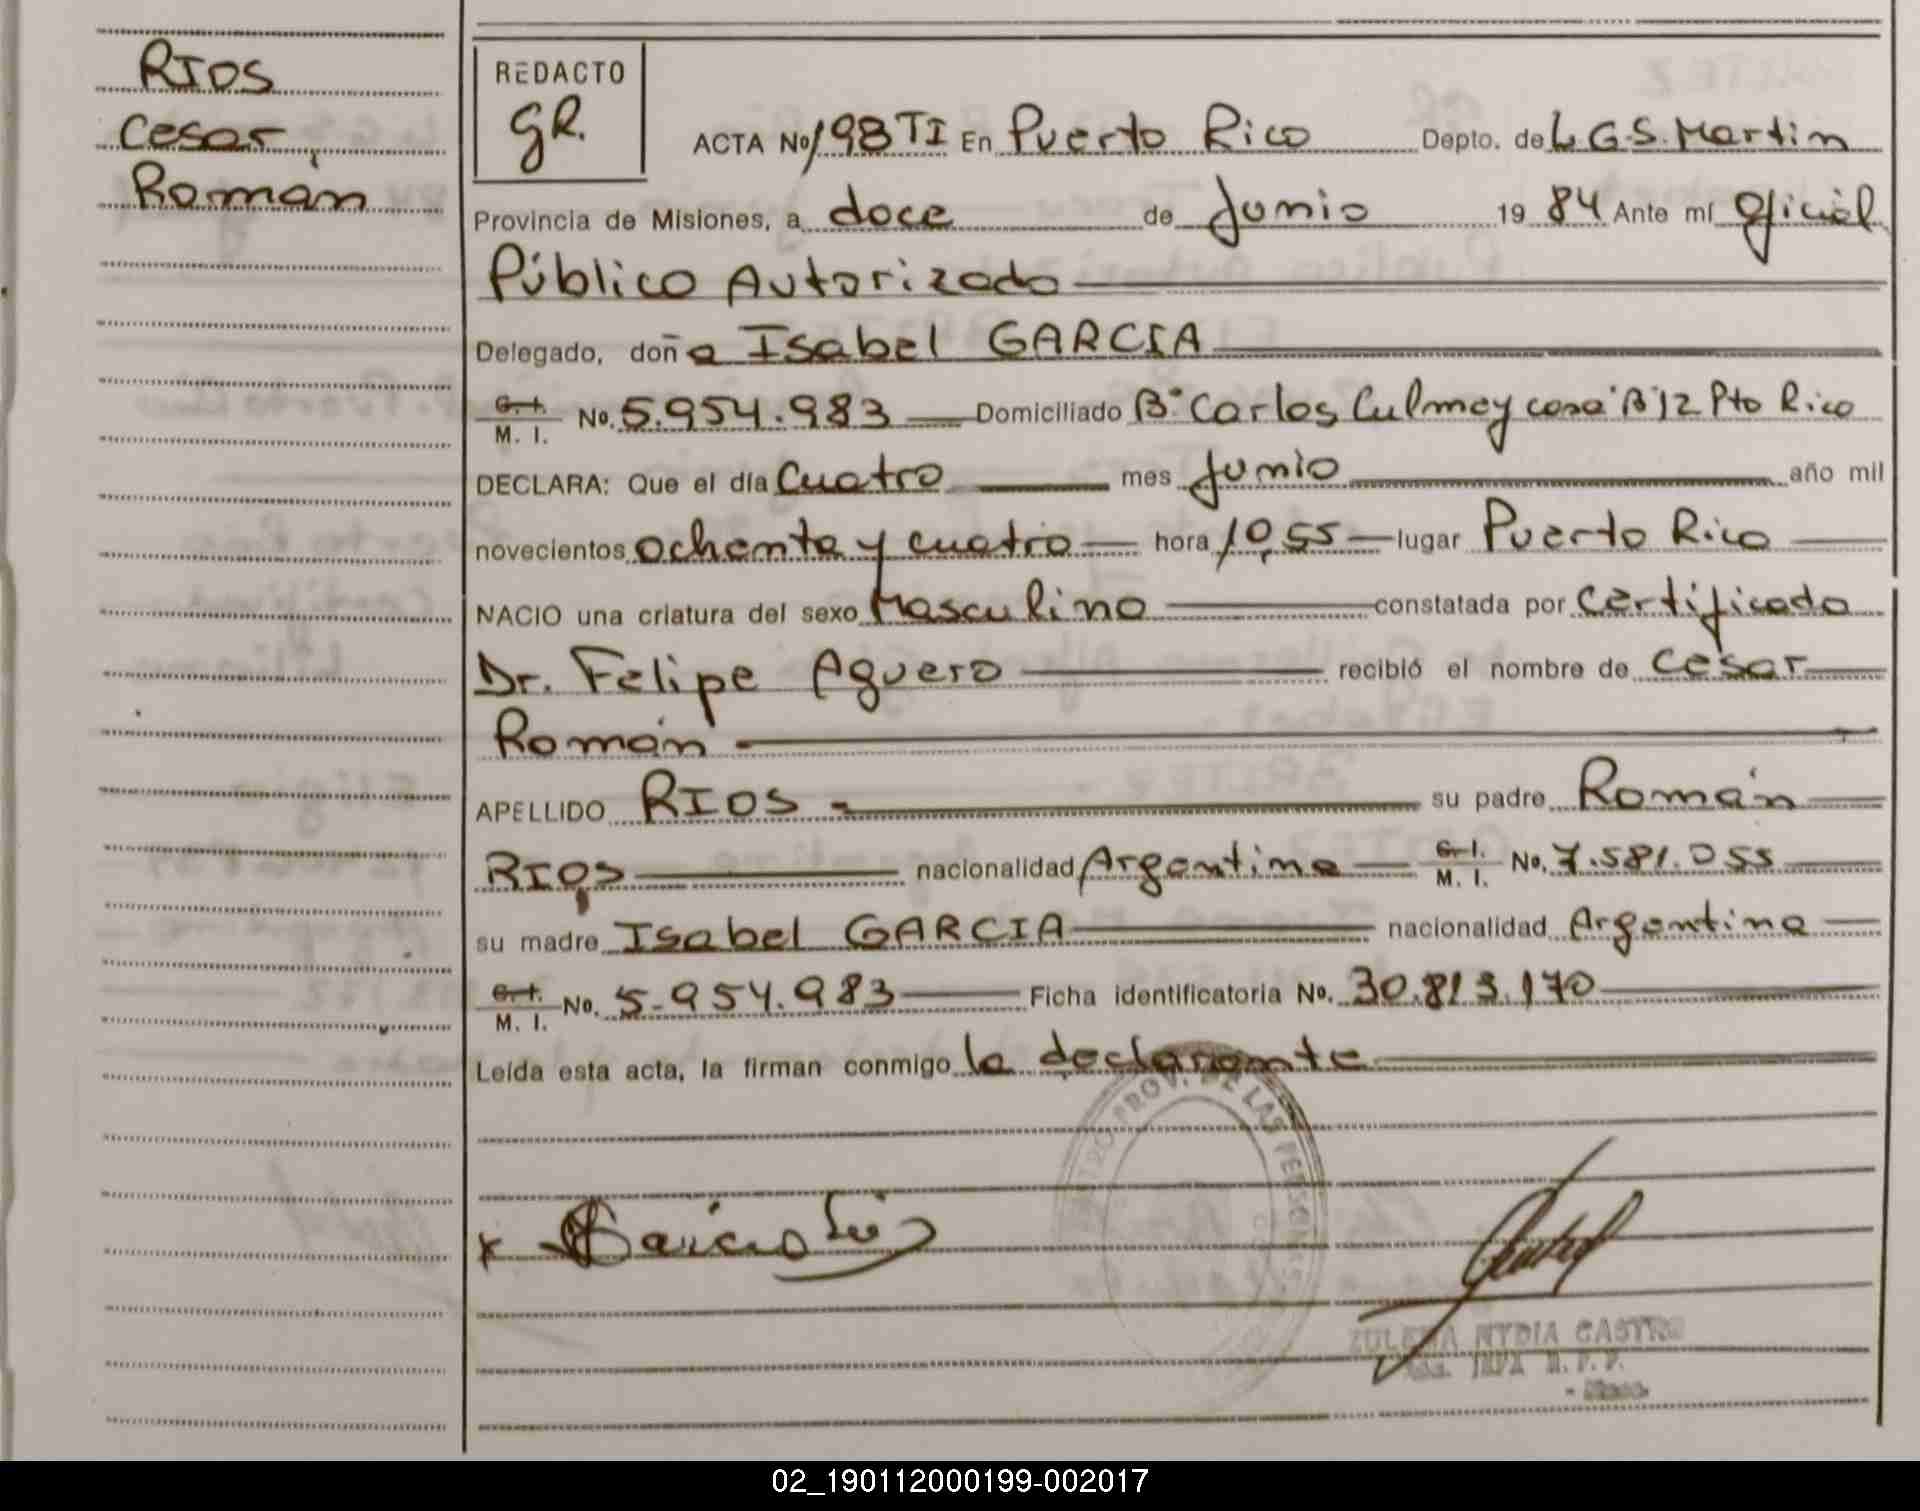 RIOS
Cesar
Román
REDACTO
GR.
ACTA No 198 TI En Puerto Rico Depto. de L.G.S. Martin
Provincia de Misiones, a doce de Junio 19 84 Ante mí Oficial
Público Autorizado
Delegado, doñ a Isabel GARCIA
C. I.
M. I. No. 5.954.983 Domiciliado B° Carlos Culmey casa B 12 Pto Rico
DECLARA: Que el día Cuatro mes Junio año mil
novecientos ochenta y cuatro hora 10,55 lugar Puerto Rico
NACIO una criatura del sexo Masculino constatada por Certificado
Dr. Felipe Aguero recibió el nombre de Cesar
Román
APELLIDO RIOS su padre Román
RIOS nacionalidad Argentina C. I.
M. I. No. 7.581.055
su madre Isabel GARCIA nacionalidad Argentina
C. I.
M. I. No. 5.954.983 Ficha identificatoria No. 30.813.170
Leída esta acta, la firman conmigo la declarante
PROV. DE LAS PERSONAS
x Garcia
ZULEMA NYDIA CASTRO
02_190112000199-002017